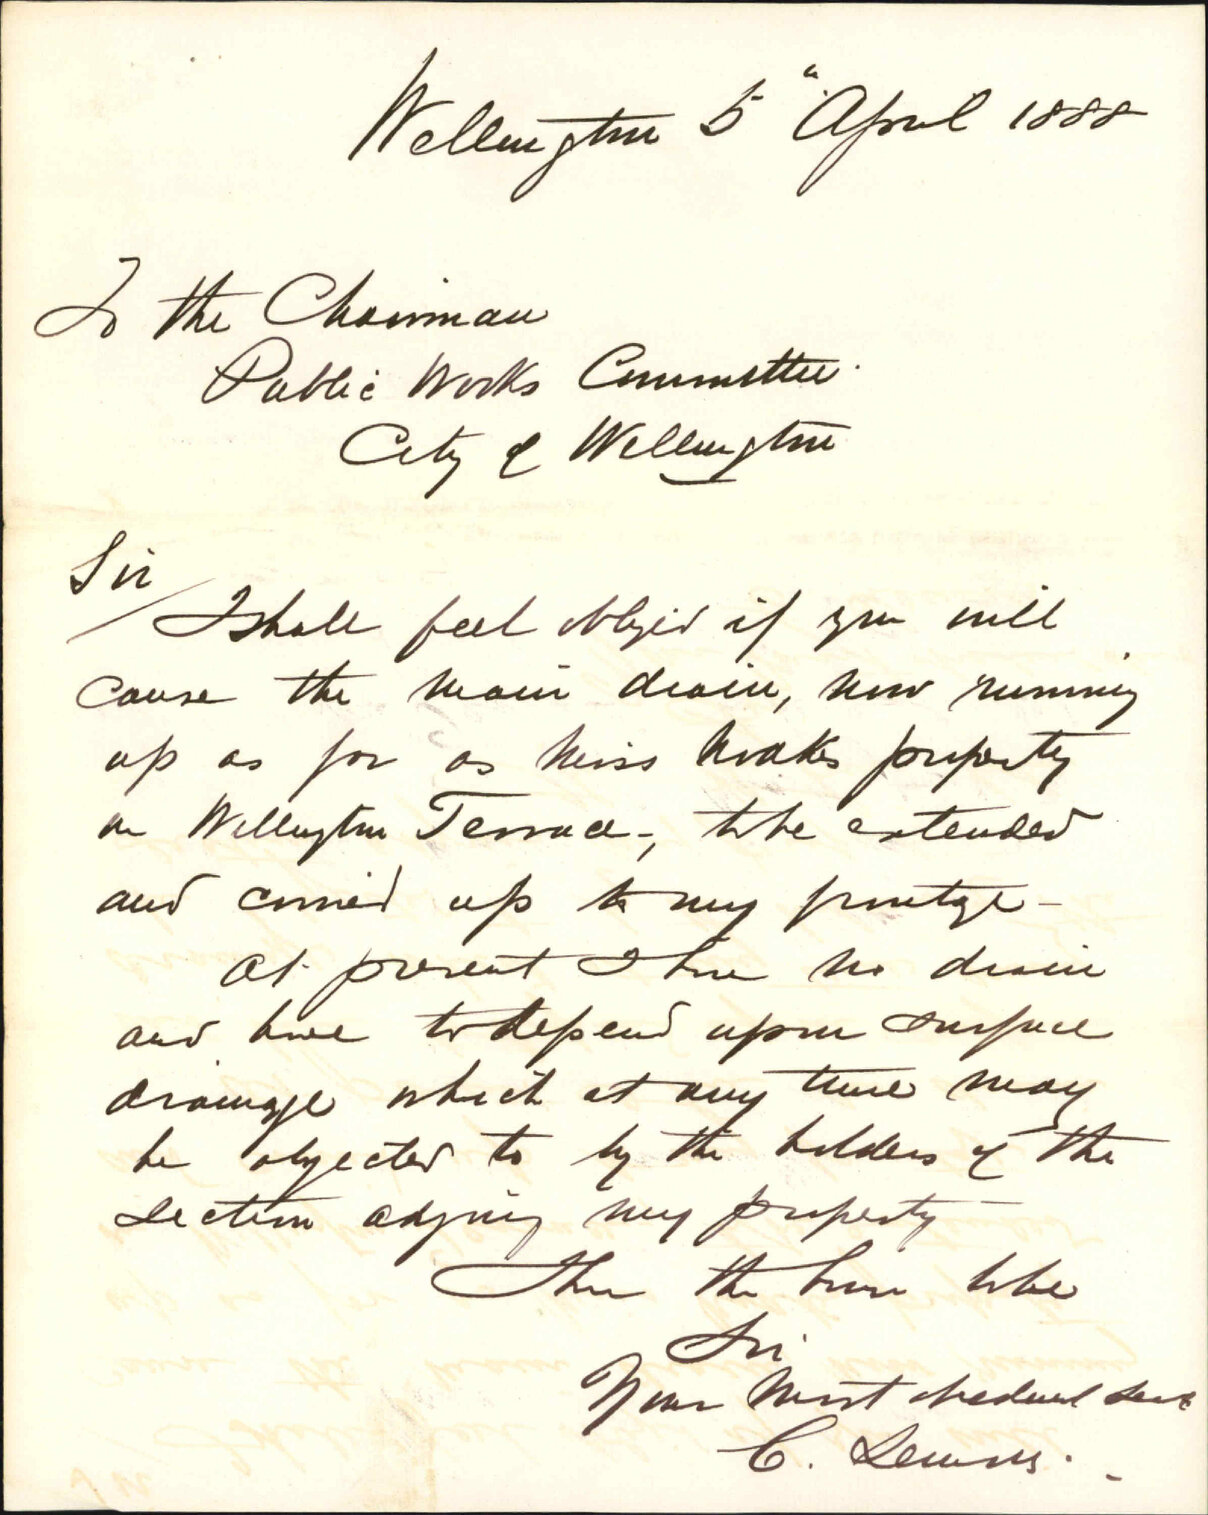 Wellington 5" April 1888
To the Chairman
Public Works Committee.
City of Wellington
Sir
I shall feel obliged if you will
cause the main drain, now running
up as far as Miss property
on Wellington Terrace -, to be extended
and carried up to my frontage -
At present I have no drain
and have to depend upon surface
drainage which at any time may
be objected to by the holders of the
section adjoining my property -
I have the honor to be
Sir
Your most obedient Servt
C.